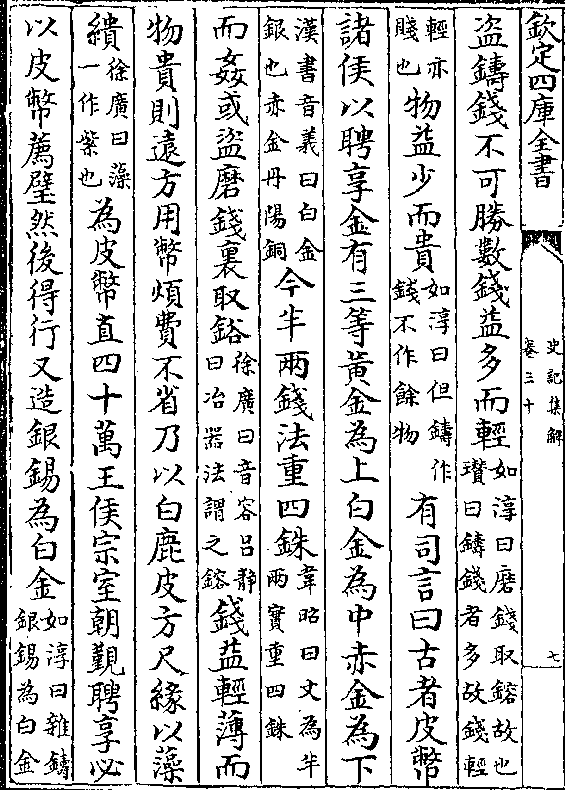 欽定四庫全書
史記集解
卷三十
七
盜鑄錢不可勝數錢益多而輕如淳曰磨錢取鎔故也瓚曰鑄錢者多故錢輕
輕亦賤也物益少而貴如淳曰但鑄作錢不作餘物有司言曰古者皮幣
諸侯以聘享金有三等黃金為上白金為中赤金為下
漢書音義曰白金銀也赤金丹陽銅今半兩錢法重四銖韋昭曰文為半兩實重四銖
而姦或盜磨錢裏取鋊徐廣曰音容呂靜曰冶器法謂之鎔錢益輕薄而
物貴則遠方用幣煩費不省乃以白鹿皮方尺緣以藻
繢徐廣曰藻一作紫也為皮幣直四十萬王侯宗室朝覲聘享必
以皮幣薦璧然後得行又造銀錫為白金如淳曰雜鑄銀錫為白金